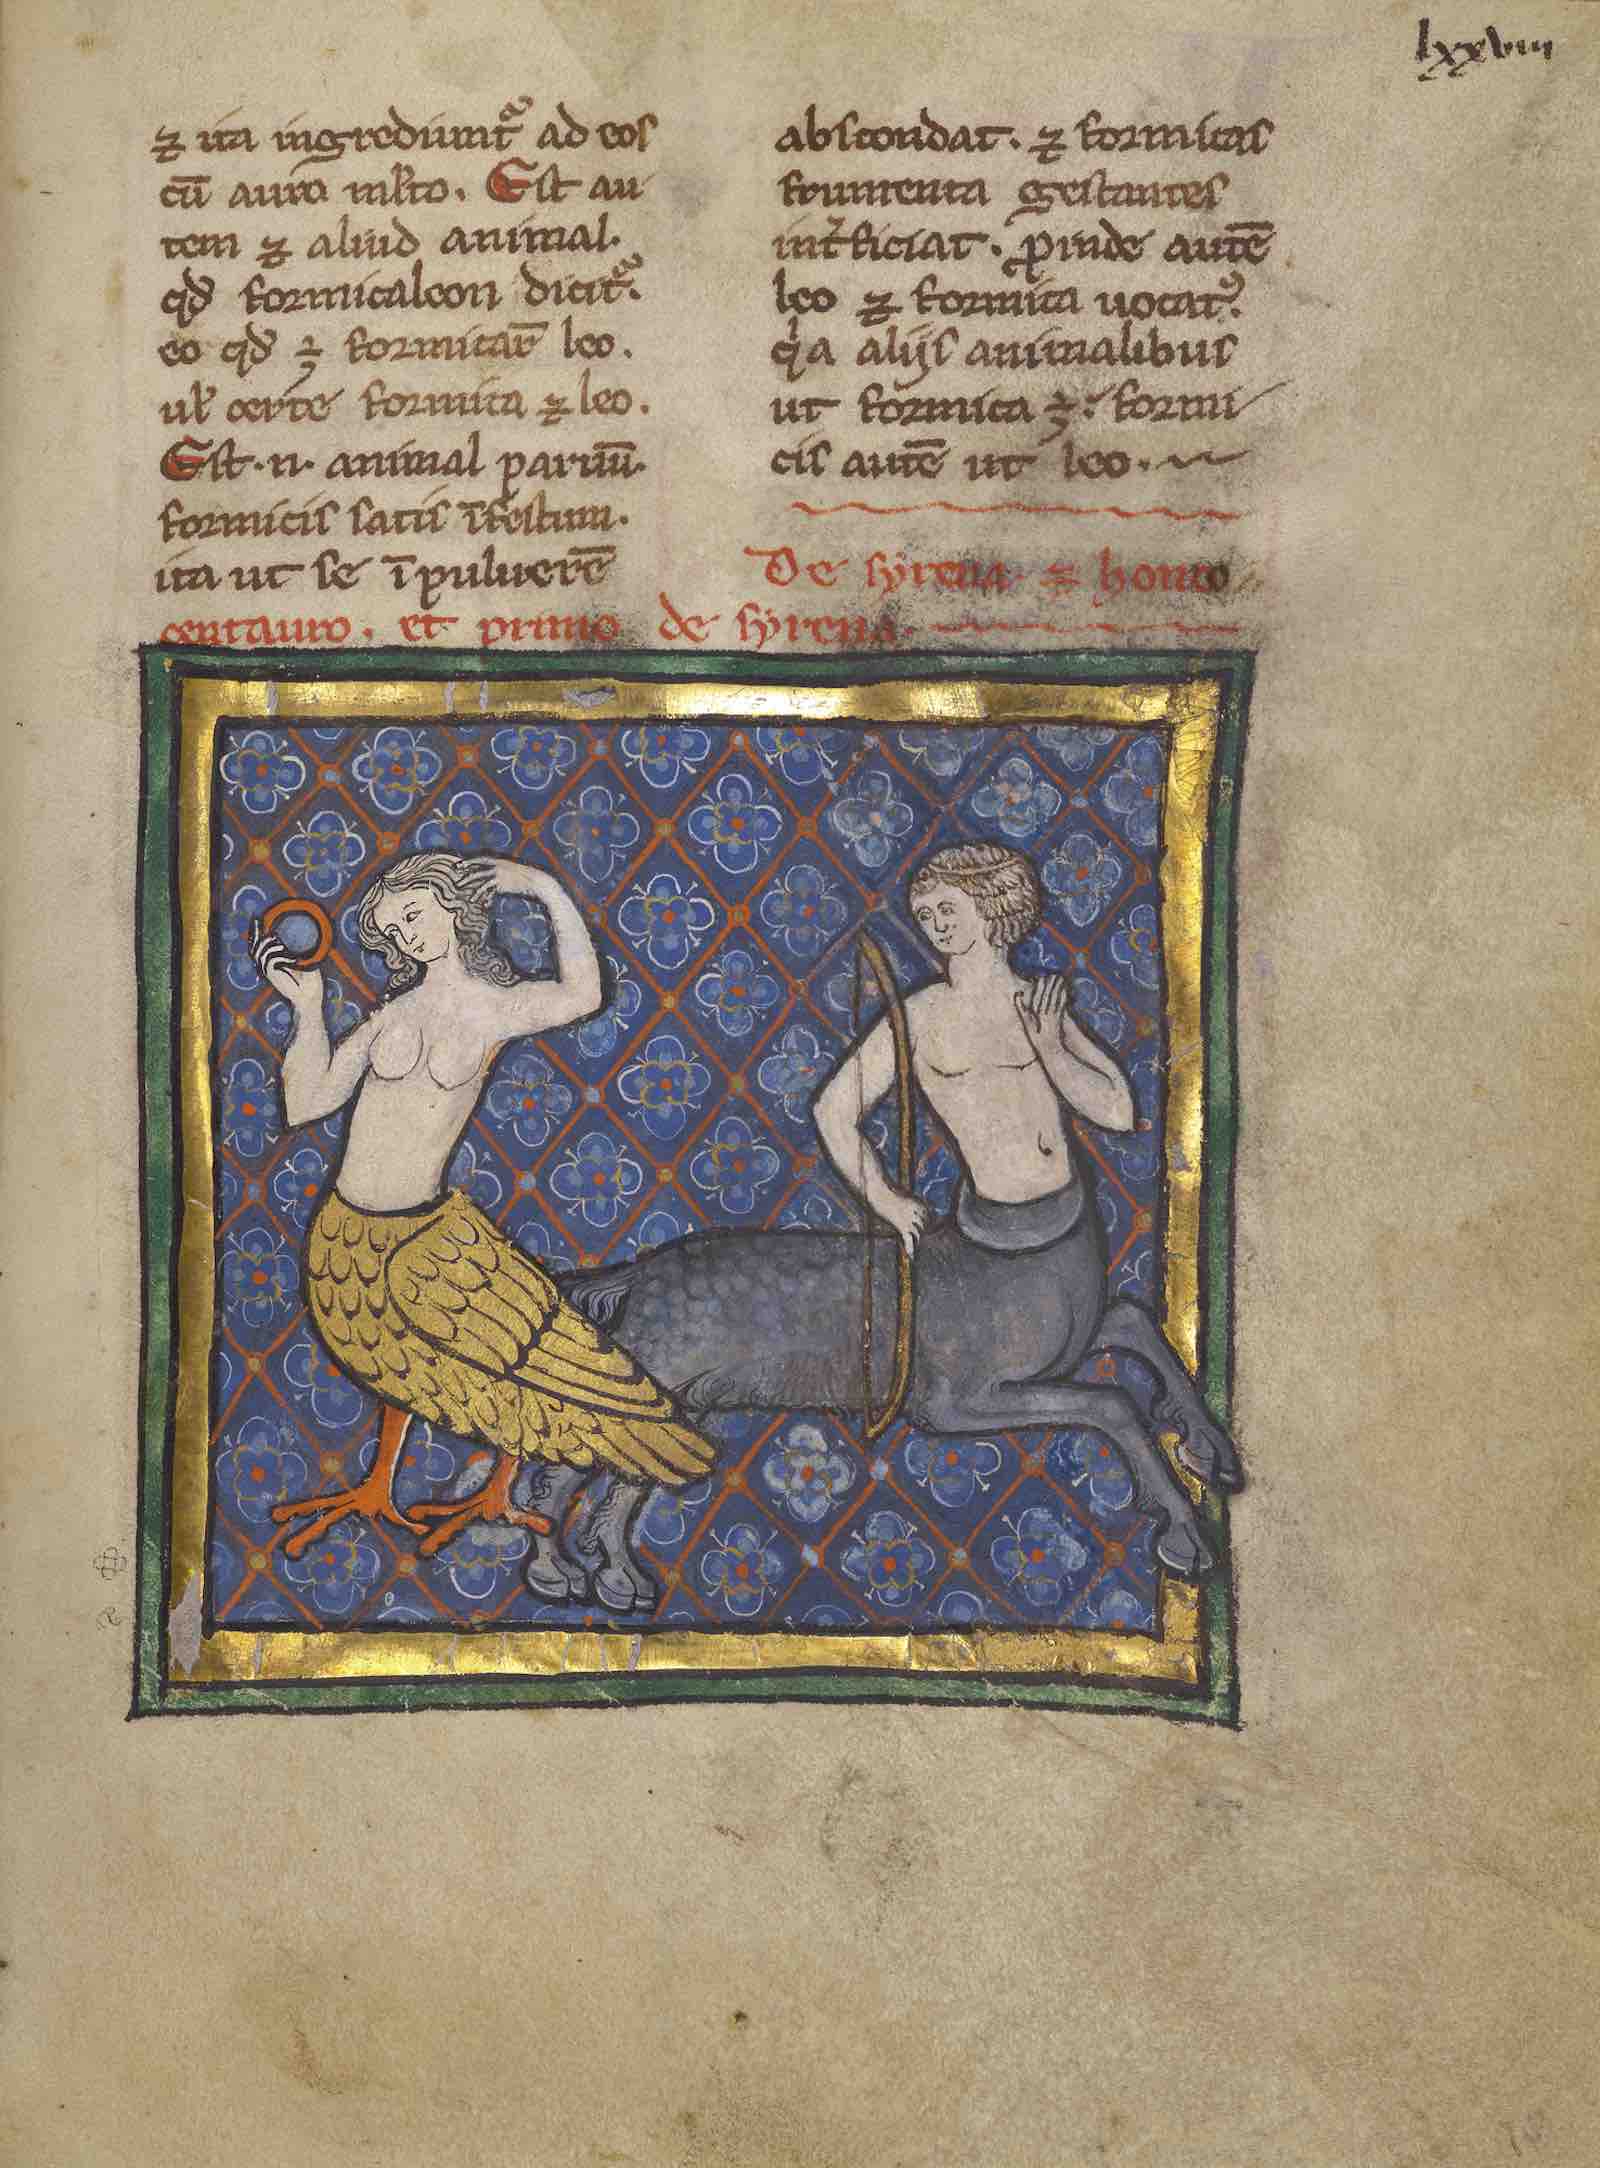 lxxviii
⁊ ita ingrediunt᷑ ad eos
cū auro ml̅to. Est au
tem ⁊ aliud animal.
qd̵ formicaleon dicit᷑.
eo qd̵ ÷ formicaꝝ leo.
ul̵ certe formica ⁊ leo.
Est .n. animal paruū.
formicis satis īfestum.
ita ut se ī puluerē
abscondat. ⁊ formicas
frumenta gestantes
int̾ficiat. ꝓinde autē
leo ⁊ formica uocat᷑.
qͥa alijs animalibus
ut formica ÷. formi
cis autē ut leo.
De syrena ⁊ hono
centauro. et primo de syrena.